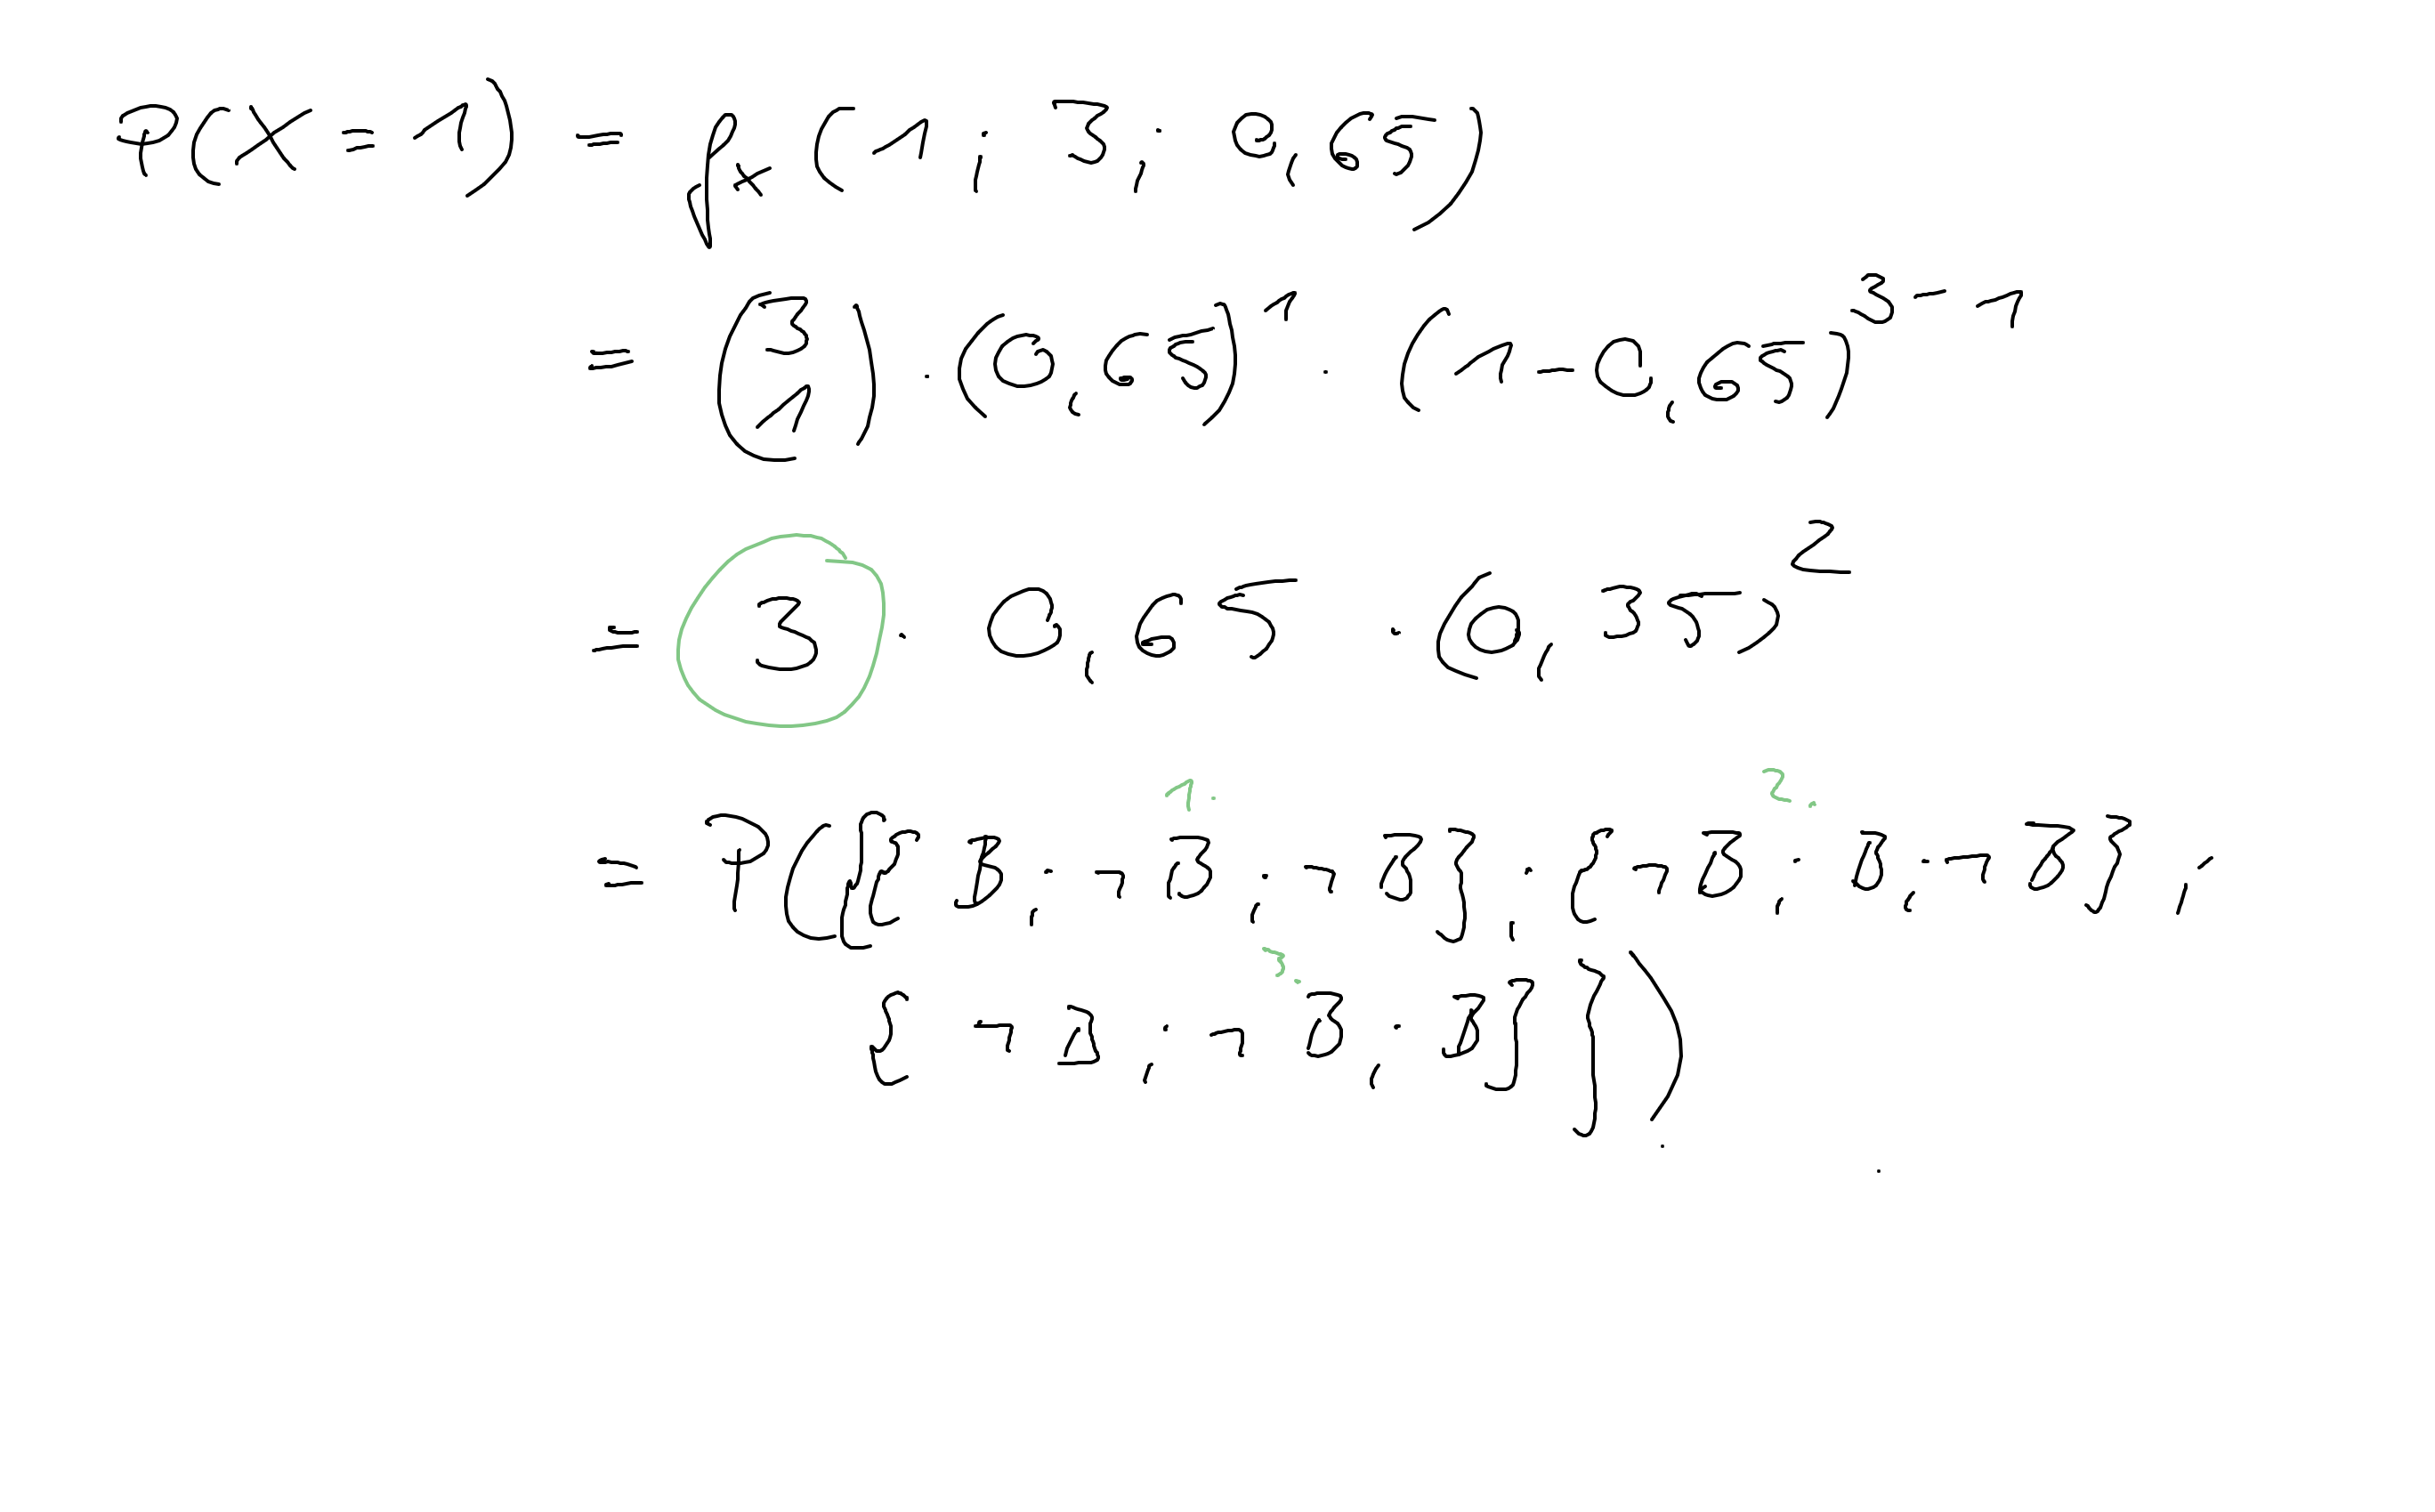 P(X = 1) = fx(1; 3; 0,65)
= (3 1) · (0,65)^1 · (1-0,65)^3-1
= 3 · 0,65 · (0,35)^2
1. 2.
= P({{B; ¬B; ¬B}; {¬B; B; ¬B};
3.
{¬B; ¬B; B}})